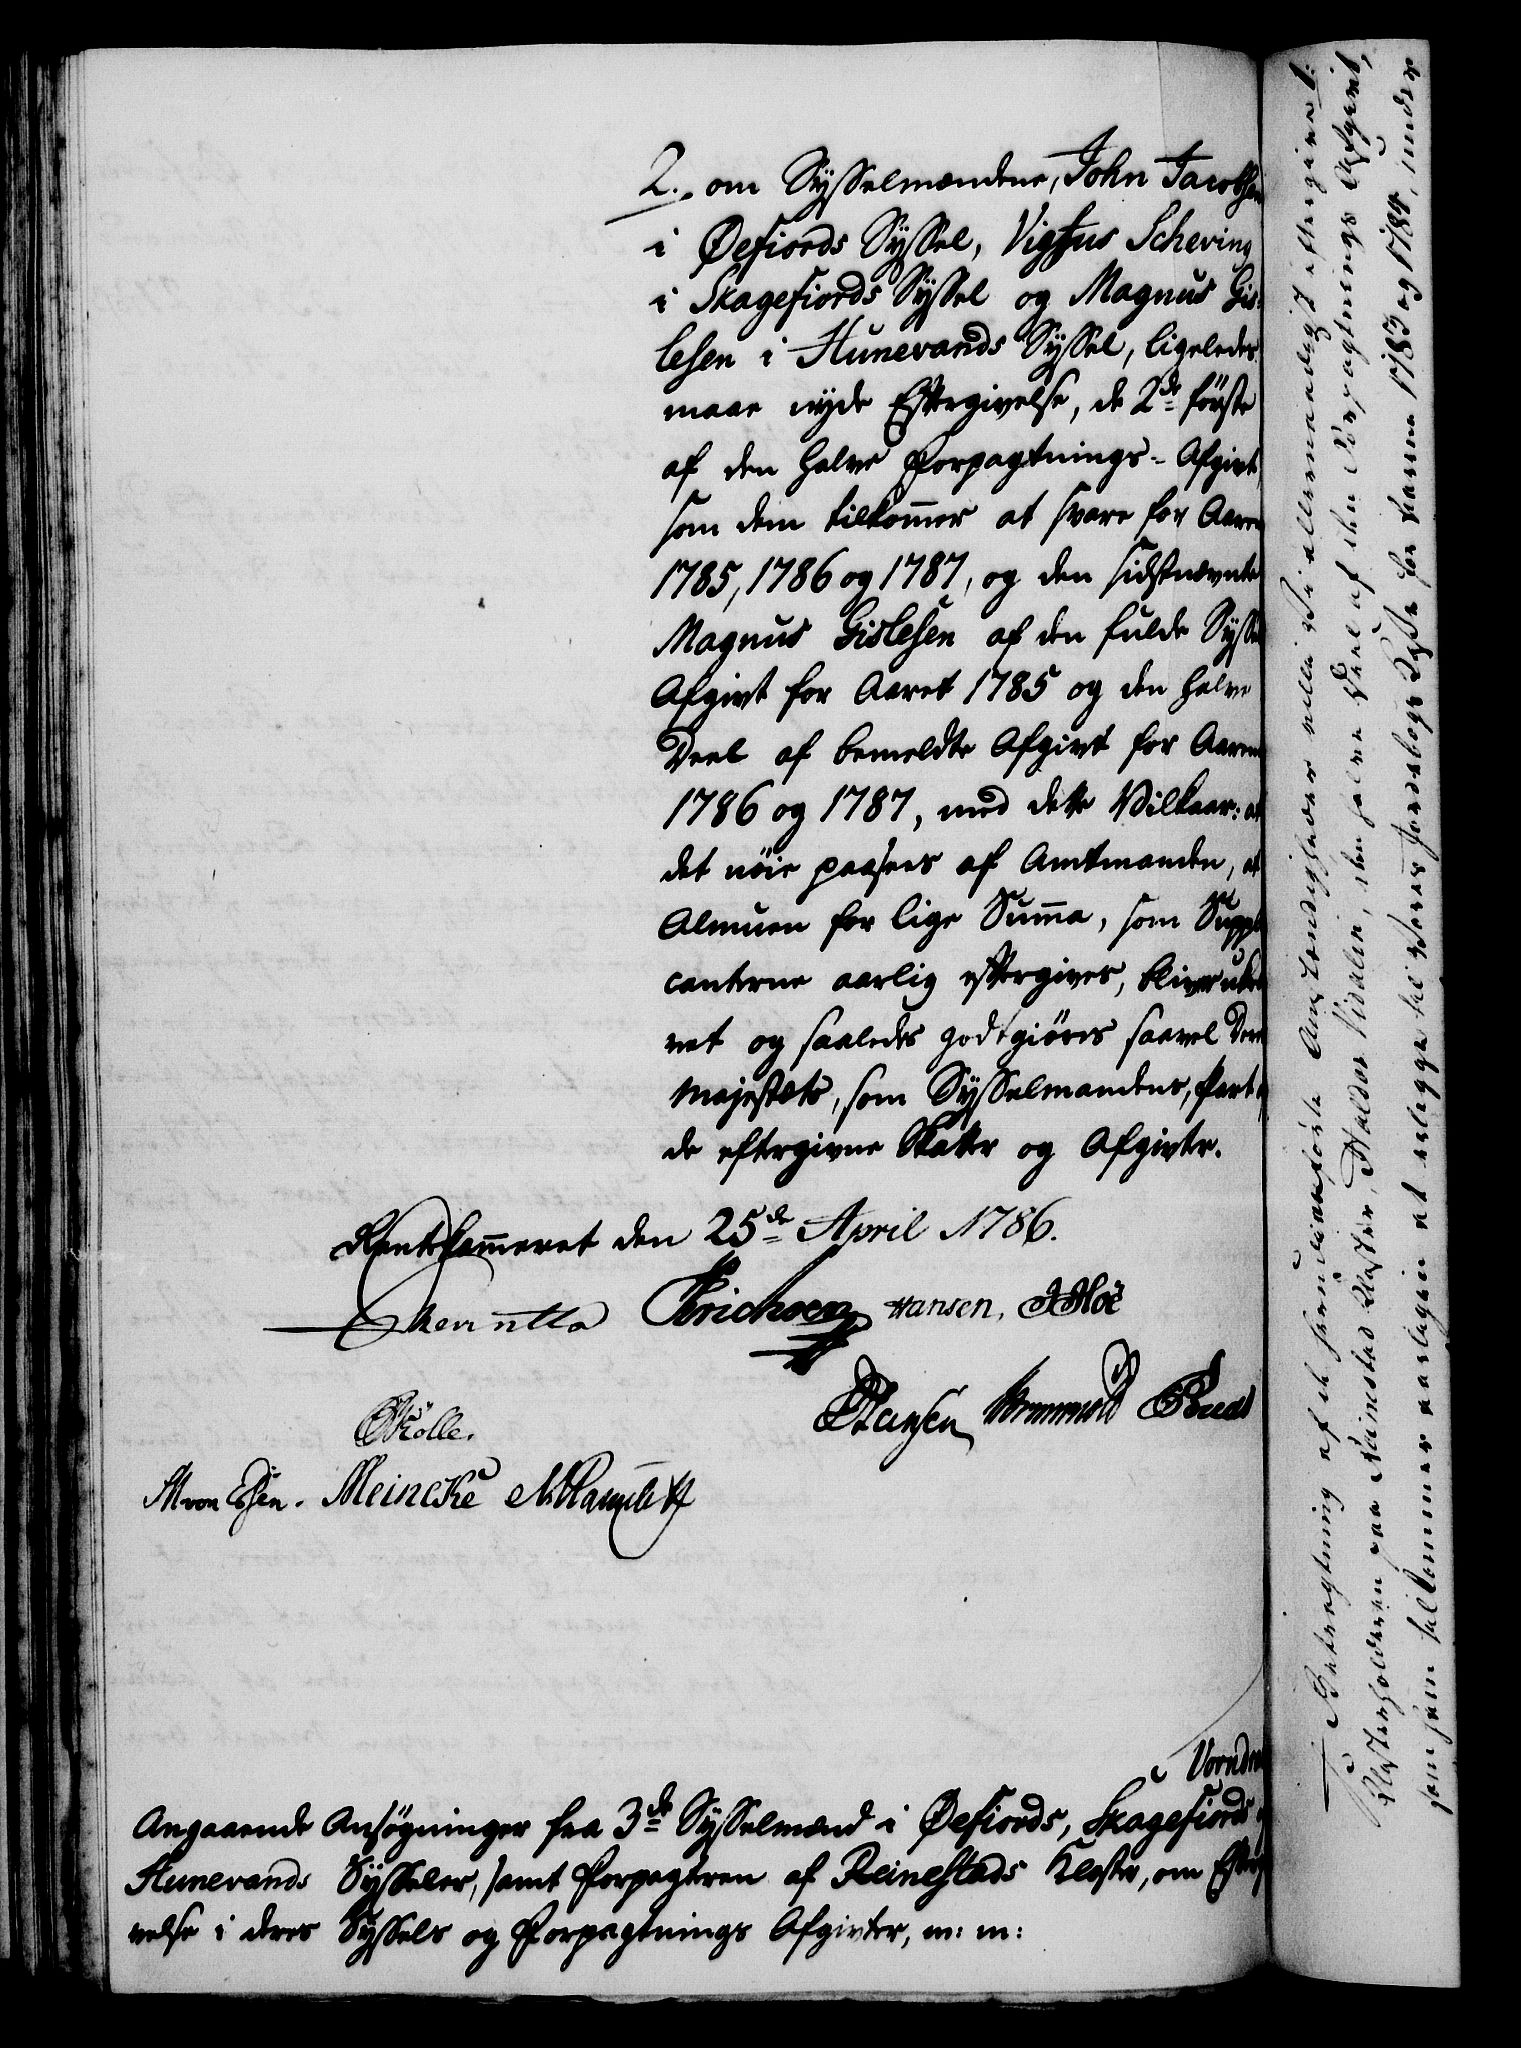 2. om Sysselmændene, John Jacobsen
i Øefiords Syssel, Vigfus Scheving
i Skagefiords Syssel og Magnus Gis-
lesen i Hunevands Syssel, ligeledes
maae nyde Eftergivelse, de 2de første
af den halve Forpagtnings-Afgivt,
som dem tilkom̄er at svare for Aarene
1785, 1786 og 1787, og den sidstnævnte
Magnus Gislesen af den fulde Syssel
Afgivt for Aaret 1785 og den halve
Deel af bemeldte Afgivt for Aarene
1786 og 1787, med dette Vilkaar: at
det nøie paasees af Amtmanden, at
Almuen for lige Sum̄a, som Suppli
canterne aarlig eftergives, bliver
og saaledes godtgiøres saavel Deres
Majestæts, som Sysselmandens, Part
de eftergivne Skatter og Afgivter.
Rentekam̄eret den 25de April 1786.
Erichsen Hansen,
Hansen
Rölle.
von Essen. Meincke
Angaaende Ansøgninger fra 3de Sysselmænd i Øefiords, Skagefiords
Hunevands Sysseler, samt Forpagteren af Reinestads Kloster, om Efter
velse i deres Syssels og Forpagtnings Afgivter, m: m:
I Betragtning af de herudi anførte Omstændigheder ville Vi allernaadigst eftergive 1:
Klosterholderen paa Reinestad Kloster, Haldor Vidalin, den halve Deel af den Forpagtnings Afgivt,
som ham tilkommer aarligen at erlegge til Vores Jordebogs Kasse for Aarene 1783 og 1784, under